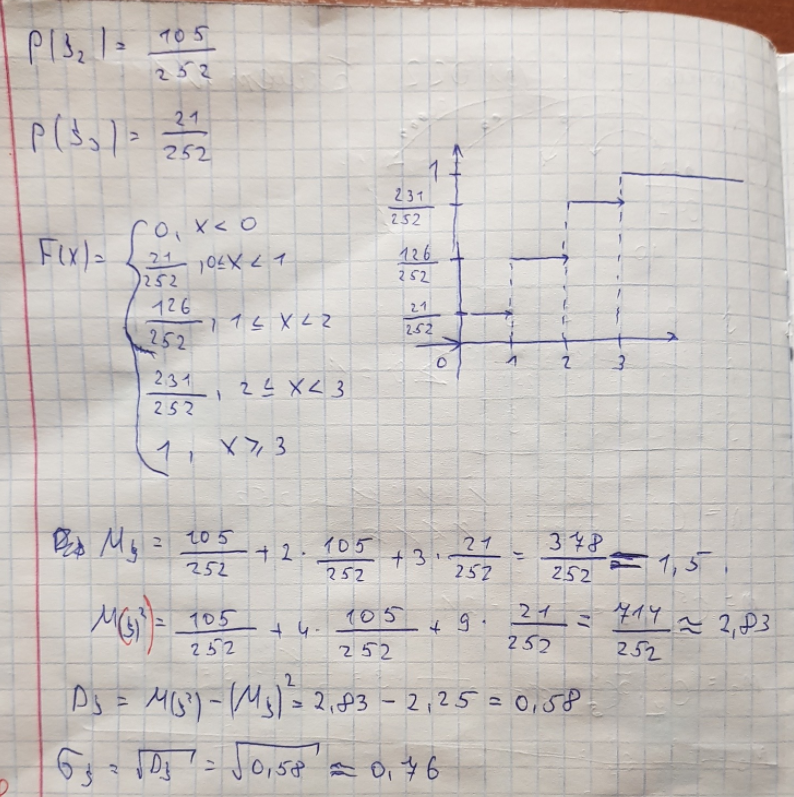 P(ξ₂) = 105/252
P(ξ₃) = 21/252
F(x) = { 0, x < 0
21/252, 0 ≤ x < 1
126/252, 1 ≤ x < 2
231/252, 2 ≤ x < 3
1, x ≥ 3
1
231/252
126/252
21/252
0 1 2 3
Mξ = 105/252 + 2 · 105/252 + 3 · 21/252 = 378/252 = 1,5.
M(ξ)² = 105/252 + 4 · 105/252 + 9 · 21/252 = 714/252 ≈ 2,83
Dξ = M(ξ²) - (Mξ)² = 2,83 - 2,25 = 0,58
σξ = √Dξ = √0,58 ≈ 0,76